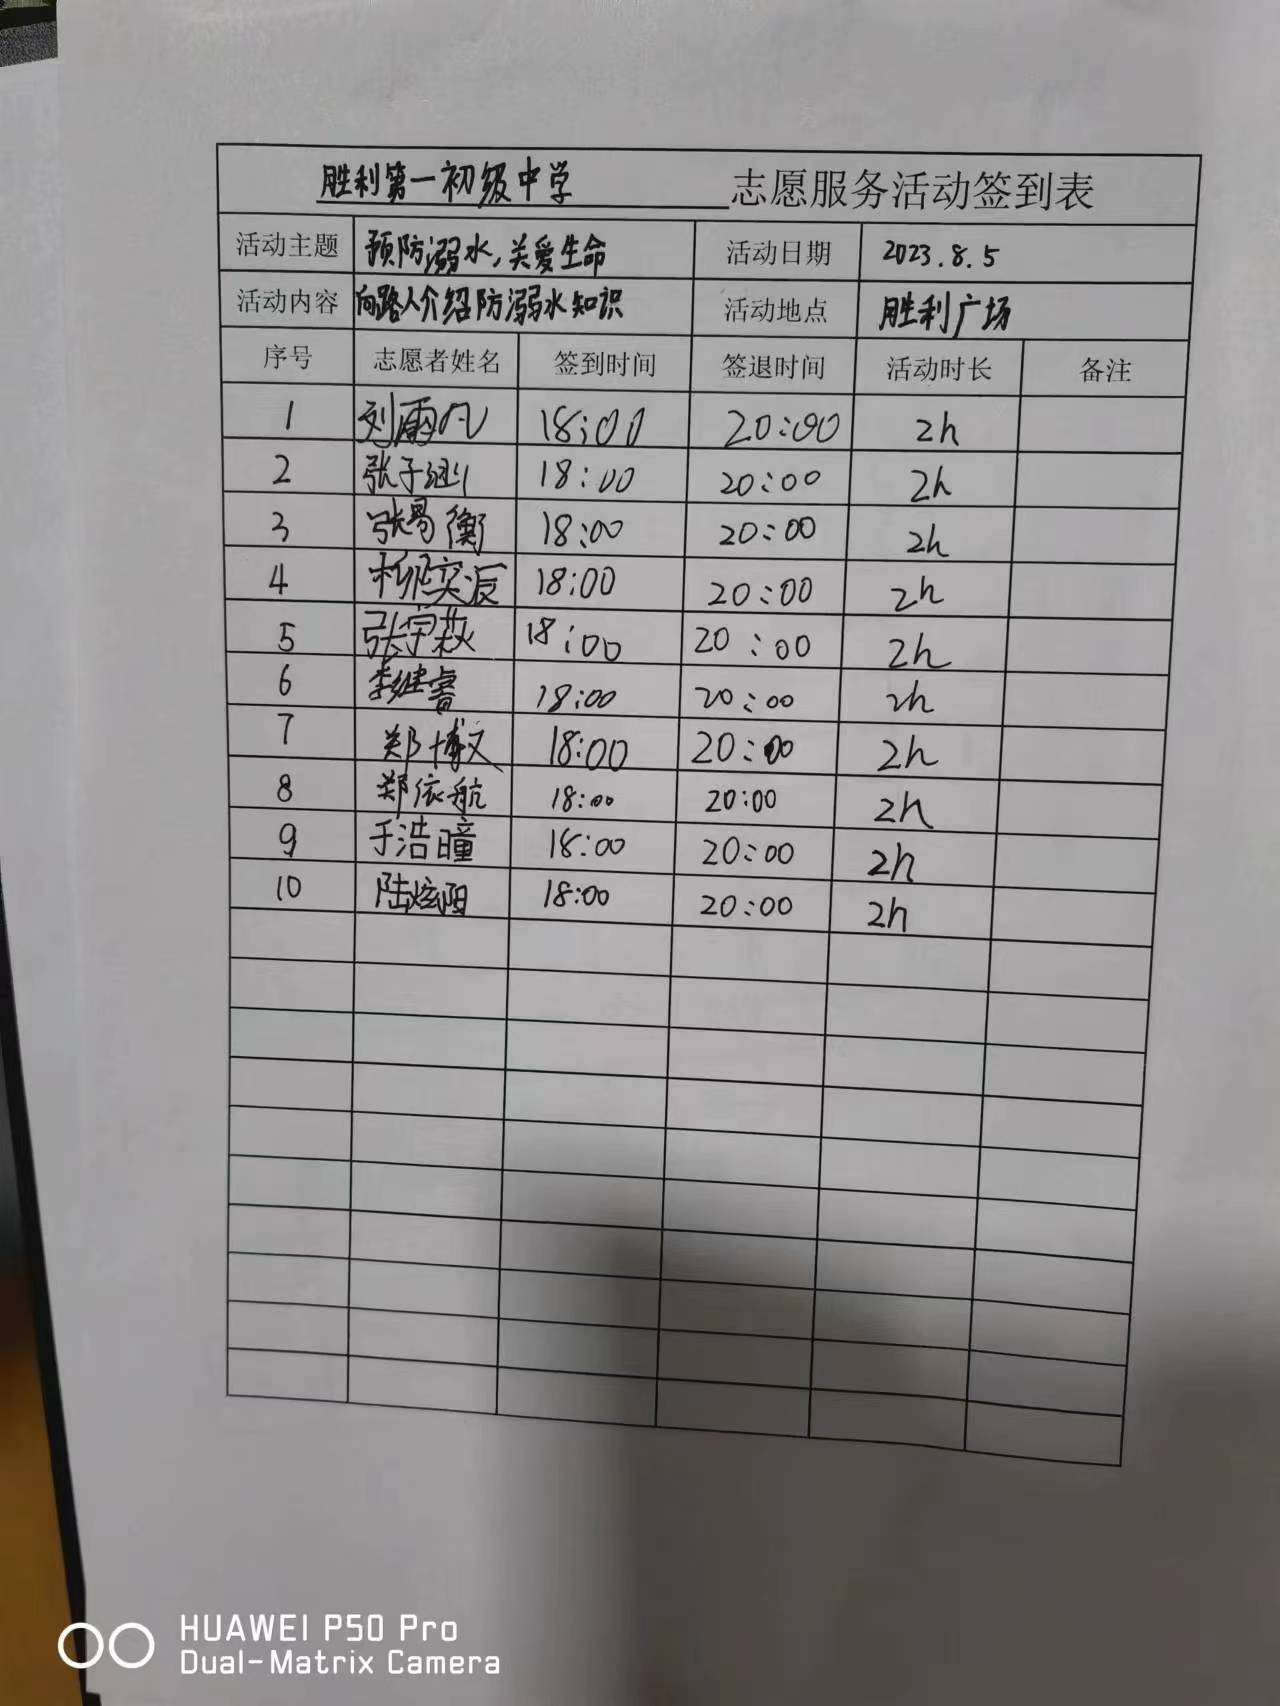 胜利第一初级中学 志愿服务活动签到表
活动主题 预防溺水,关爱生命 活动日期 2023.8.5
活动内容 向路人介绍防溺水知识 活动地点 胜利广场
序号 志愿者姓名 签到时间 签退时间 活动时长 备注
1 刘雨凡 18:00 20:00 2h
2 张子 18:00 20:00 2h
3 张易衡 18:00 20:00 2h
4 柳奕辰 18:00 20:00 2h
5 张宇萩 18:00 20:00 2h
6 李继睿 18:00 20:00 2h
7 郑博文 18:00 20:00 2h
8 郑依航 18:00 20:00 2h
9 于浩瞳 18:00 20:00 2h
10 陆炫阳 18:00 20:00 2h
HUAWEI P50 Pro
Dual-Matrix Camera